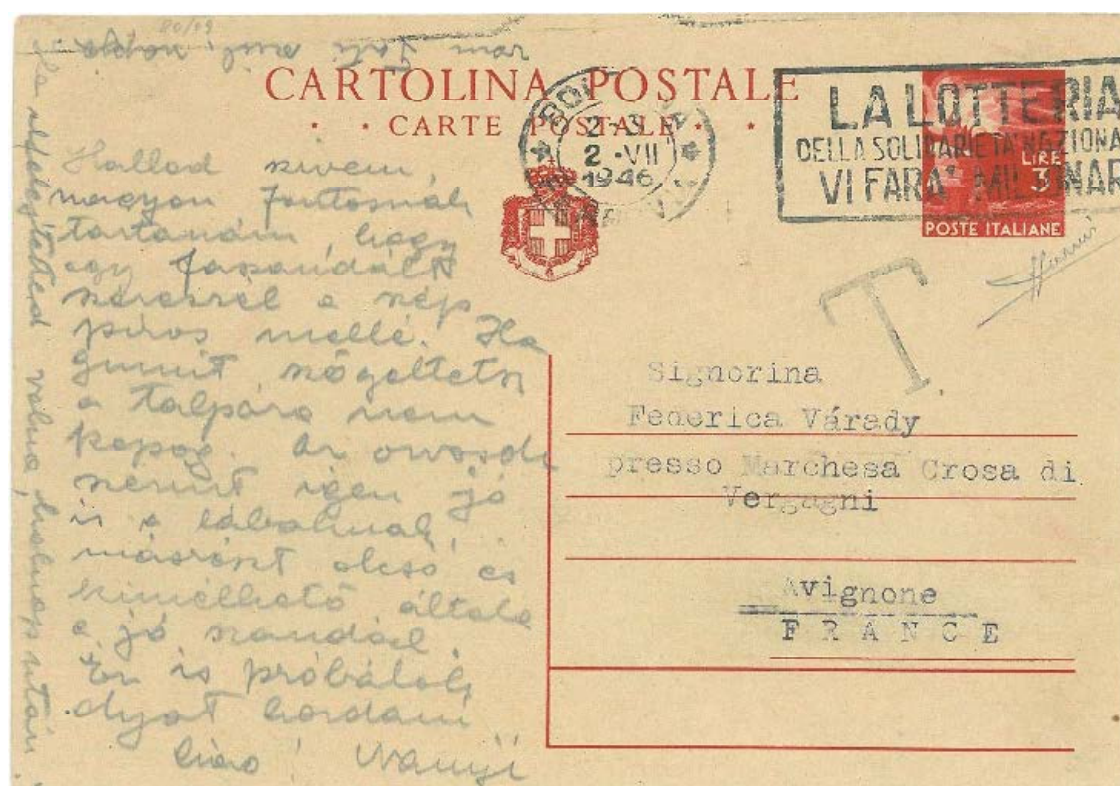 80/19
már
CARTOLINA POSTALE
CARTE POSTALE
2-3
2.-VII
1946
LA LOTTERIA
DELLA SOLIDARIETA' NAZIONA
VI FARA' MILIONAR
LIRE
3
POSTE ITALIANE
T
Hallod szivem,
nagyon fontosnak
tartanám, hogy
egy faszandált
szereznél a szép
piros mellé. Ha
gumit szögeltetsz
a talpára nem
kopog. Az orvosok
szerint igen jó
is a lábolnak,
másrészt olcsó és
kimélhető általa
a jó szandál.
Én is próbálok
olyat hordani
Ciao!
Signorina
Federica Várady
presso Marchesa Crosa di
Vergagni
Avignone
FRANCE
volna, holnap után